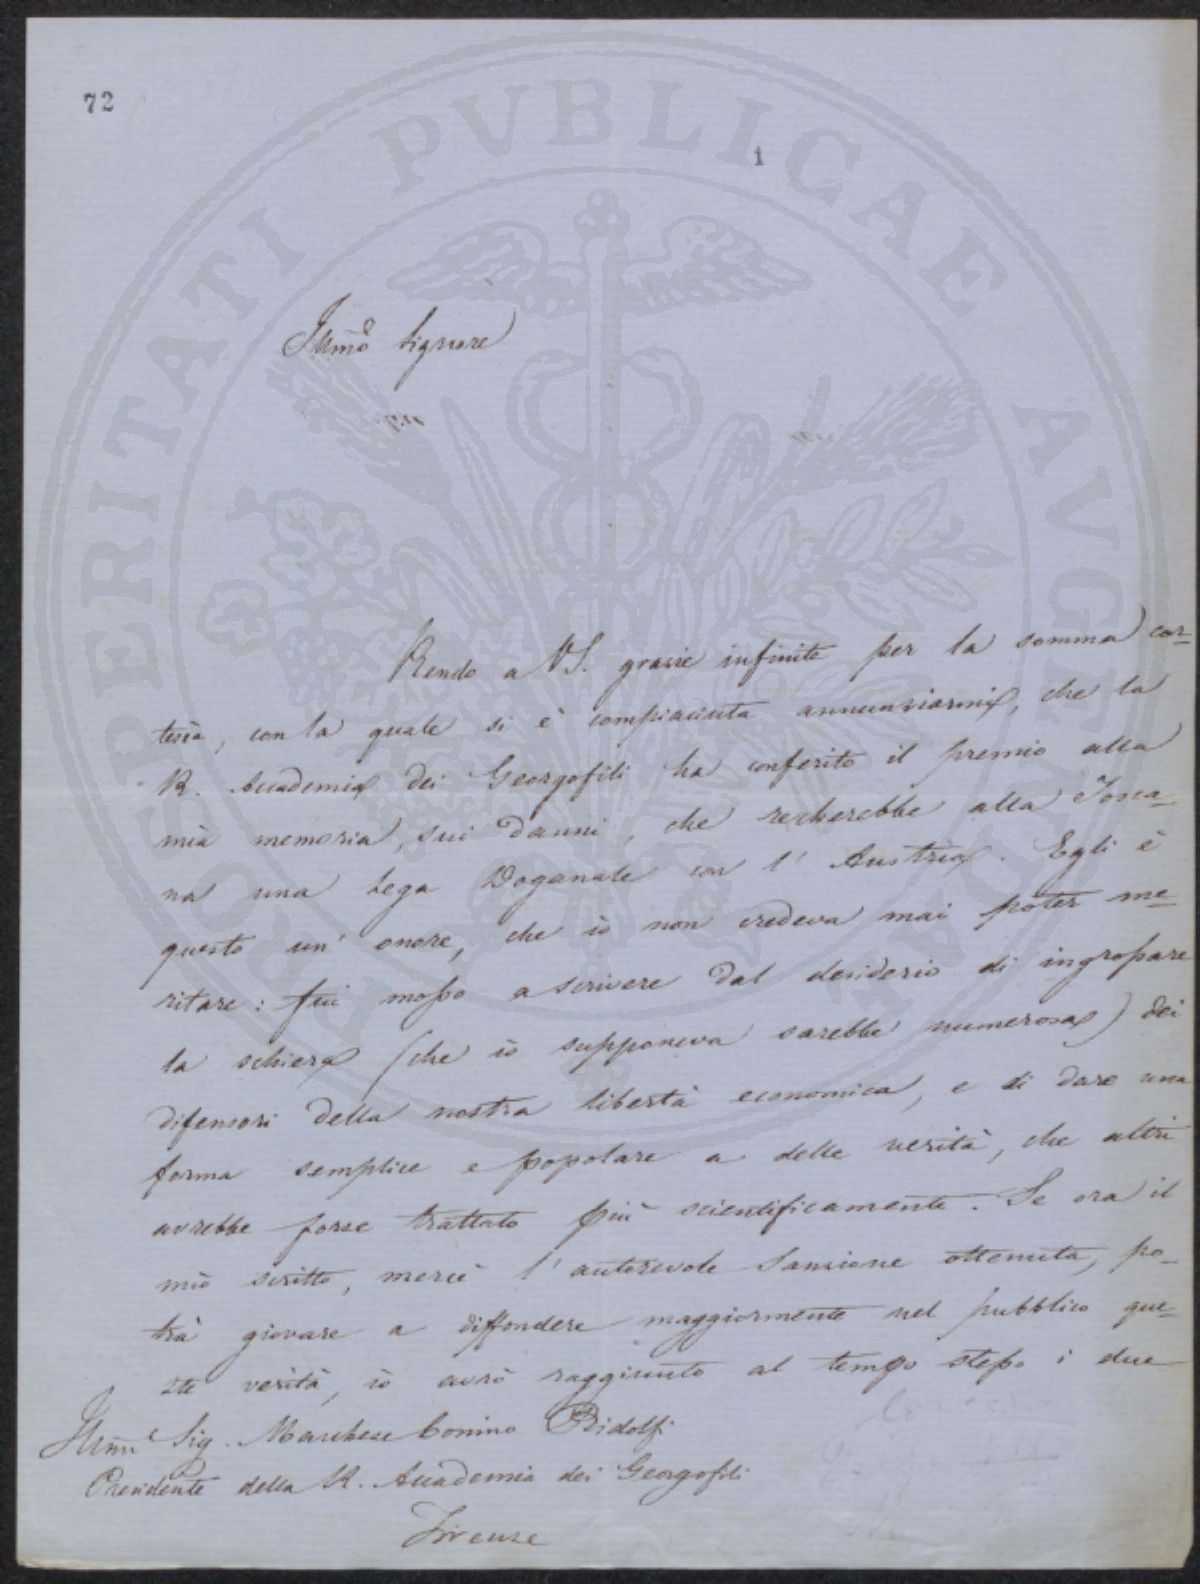 72
1
PROSPERITATI PVBLICAE AVGENDAE
Illmo Signore
Rendo a VS. grazie infinite per la somma cor-
tesia, con la quale si è compiaciuta annunziarmi, che la
R. Accademia dei Georgofili ha conferito il premio alla
mia memoria, sui danni, che recherebbe alla Tosca-
na una Lega Doganale con l'Austria. Egli è
questo un'onore, che io non credeva mai poter me-
ritare: fui mosso a scrivere dal desiderio di ingrossare
la schiera (che io supponeva sarebbe numerosa) dei
difensori della nostra libertà economica, e di dare una
forma semplice e popolare a delle verità, che altri
avrebbe forse trattato più scientificamente. Se ora il
mio scritto, mercè l'autorevole Sanzione ottenuta, po-
trà giovare a diffondere maggiormente nel pubblico que-
ste verità, io avrò raggiunto al tempo stesso i due
Illmo Sig. Marchese Cosimo Ridolfi
Presidente della R. Accademia dei Georgofili
Firenze